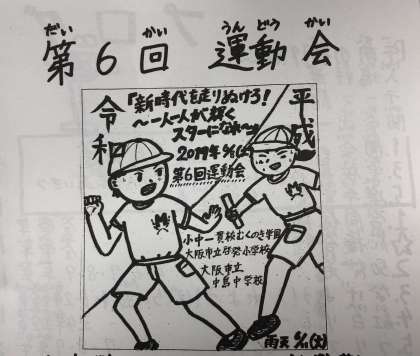 だい かい うん どう かい
第6回 運動会
令和
平成
「新時代を走りぬけろ!
～一人一人が輝く
スターになれ～」
2019年 6/1(土)
第6回運動会
小中一貫校むくのき学園
大阪市立啓発小学校
大阪市立
中島中学校
雨天 (火)